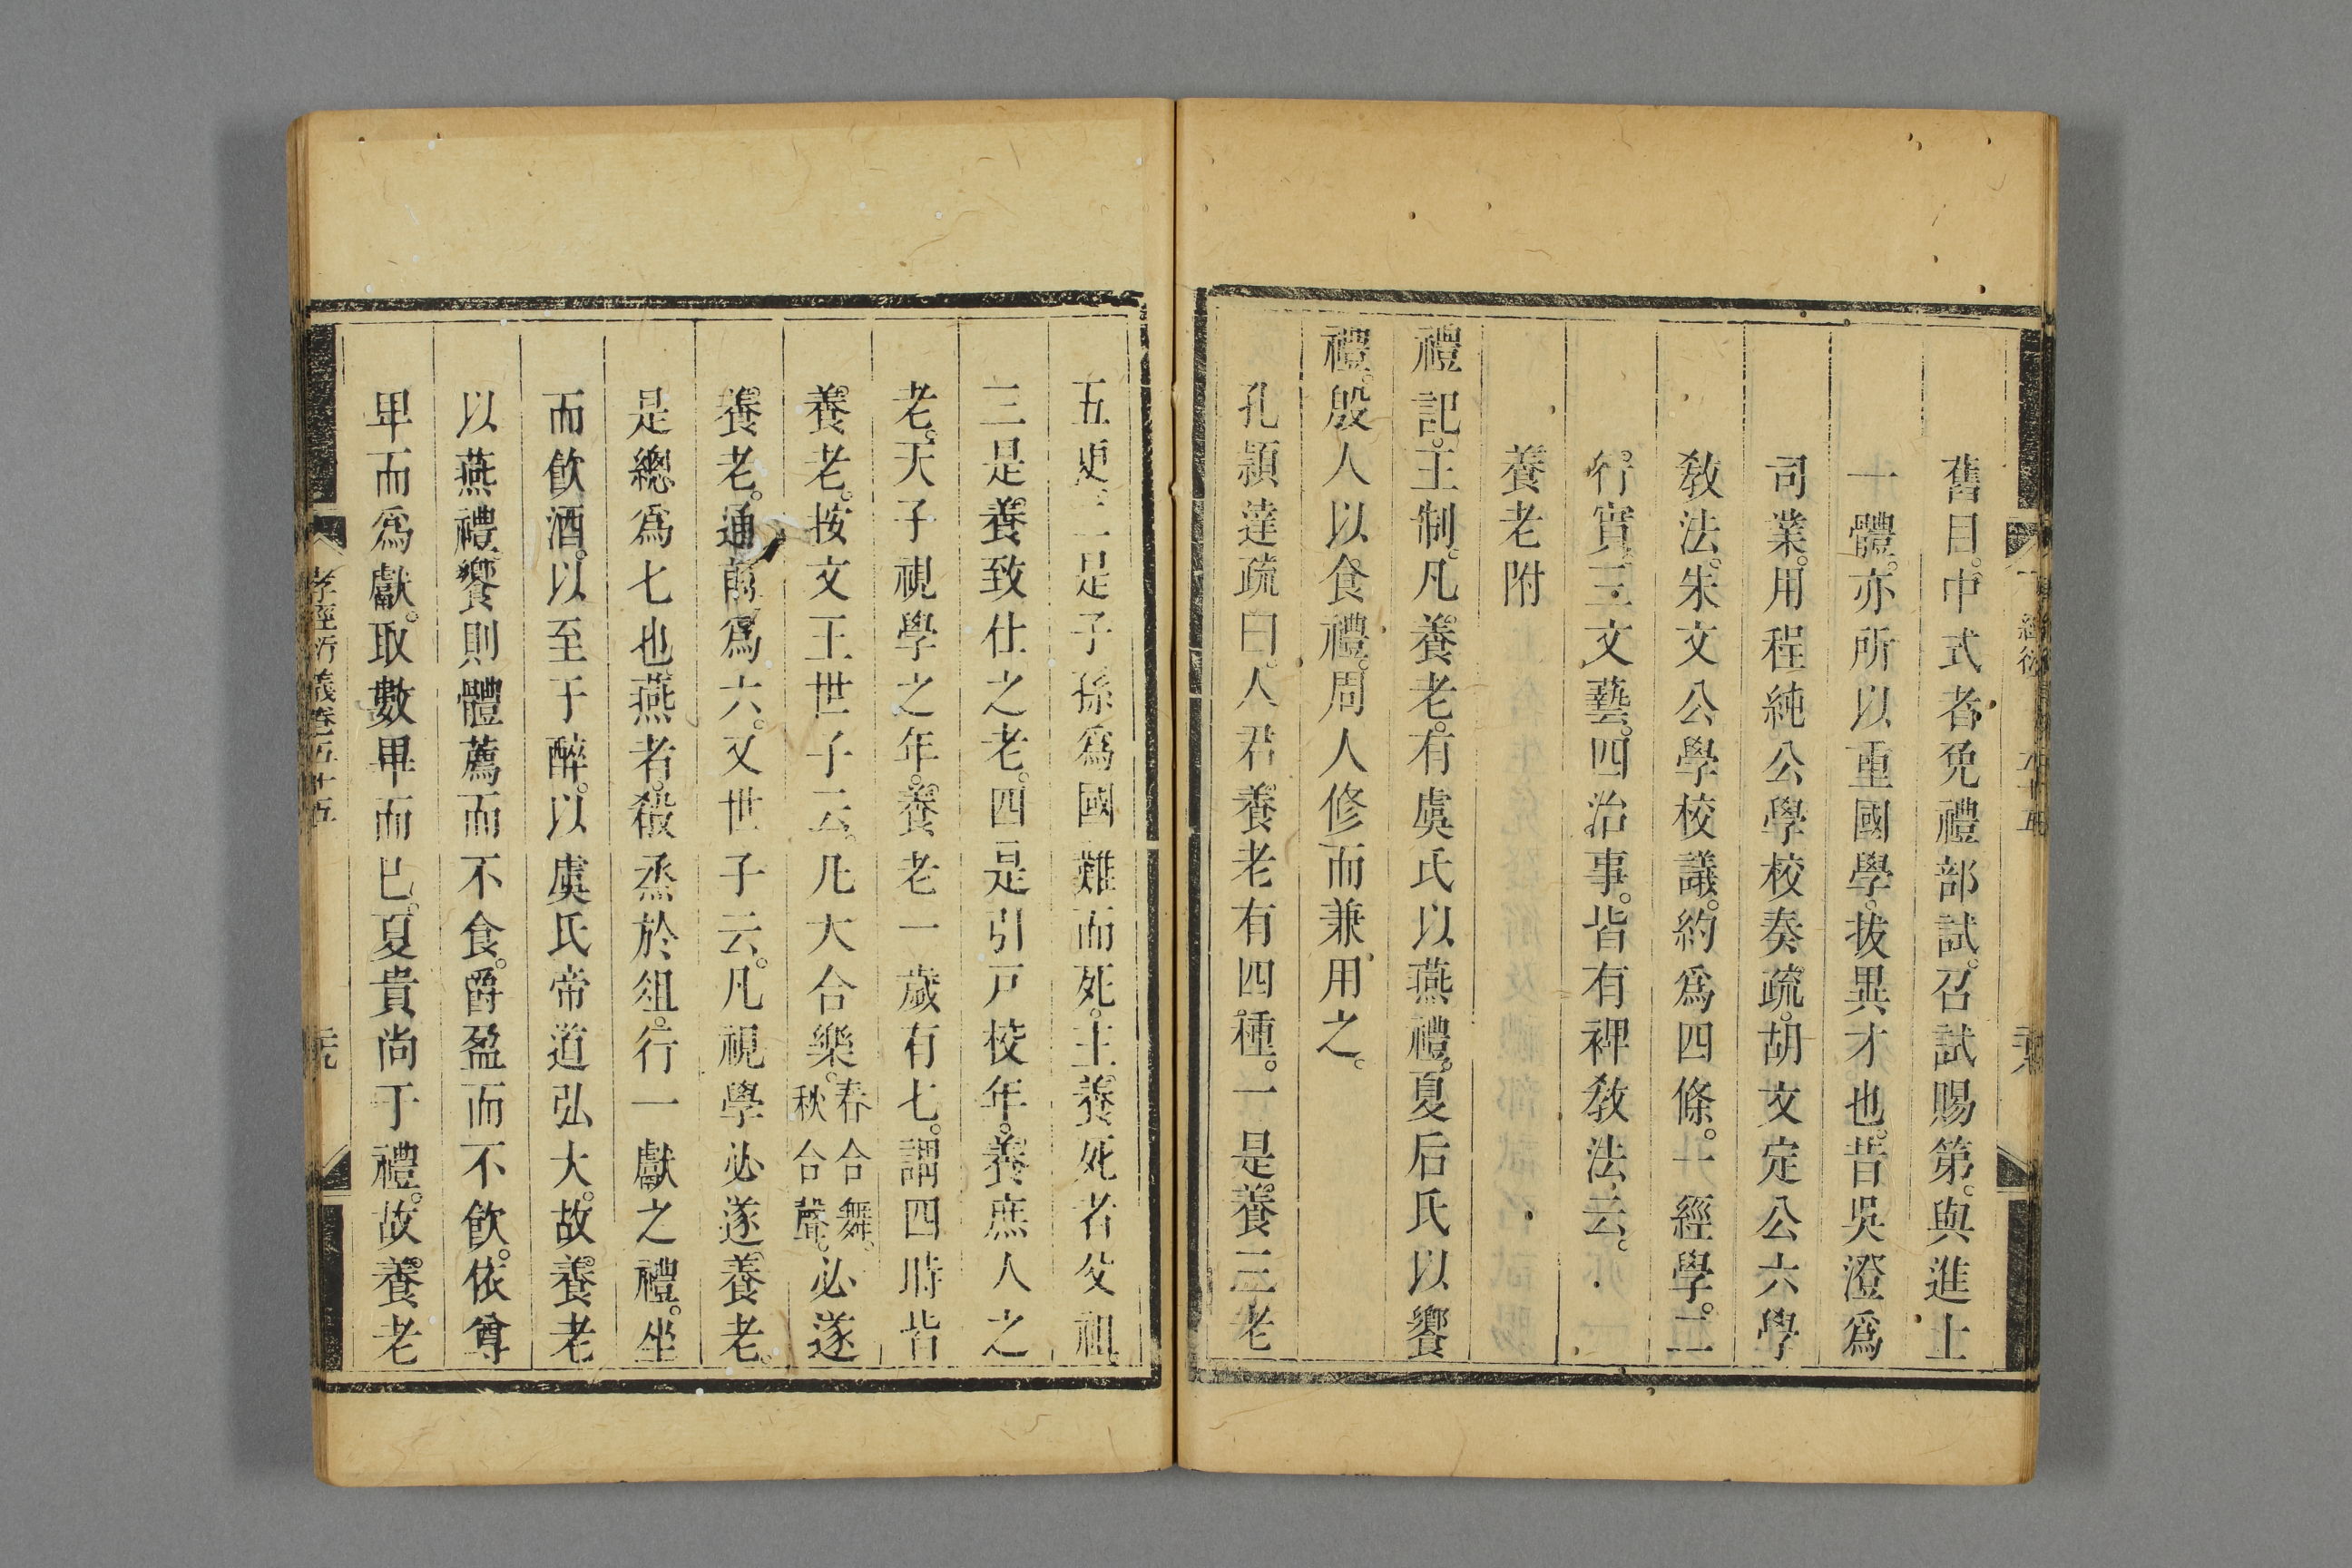 舊目。中式者免禮部試。召試賜第。與進士
一體。亦所以重國學。拔異才也。昔吳澄爲
司業。用程純公學校奏疏。胡文定公六學
敎法。朱文公學校議。約爲四條。一經學。二
行實。三文藝。四治事。皆有裨敎法云。
養老附
禮記。王制。凡養老。有虞氏以燕禮。夏后氏以饗
禮。殷人以食禮。周人修而兼用之。
孔頴達疏曰。人君養老有四種。一是養三老
五更。二是子孫爲國難而死。王養死者父祖
三是養致仕之老。四是引戸校年。養庶人之
老。天子視學之年。養老一歲有七。謂四時皆
養老。按文王世子云。凡大合樂。春合舞。秋合聲。必遂
養老。通前爲六。又世子云。凡視學必遂養老。
是總爲七也燕者。殽烝於俎。行一獻之禮。坐
而飮酒。以至于醉。以虞氏帝道弘大。故養老
以燕禮。饗則體薦而不食。爵盈而不飮。依尊
卑而爲獻。取數畢而已。夏貴尚于禮。故養老
孝經衍義卷五十五